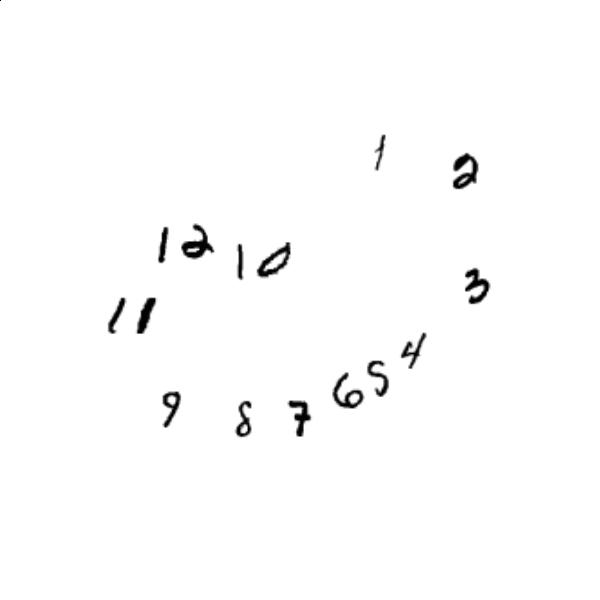 1
2
12
10
3
11
4
5
6
9
8
7